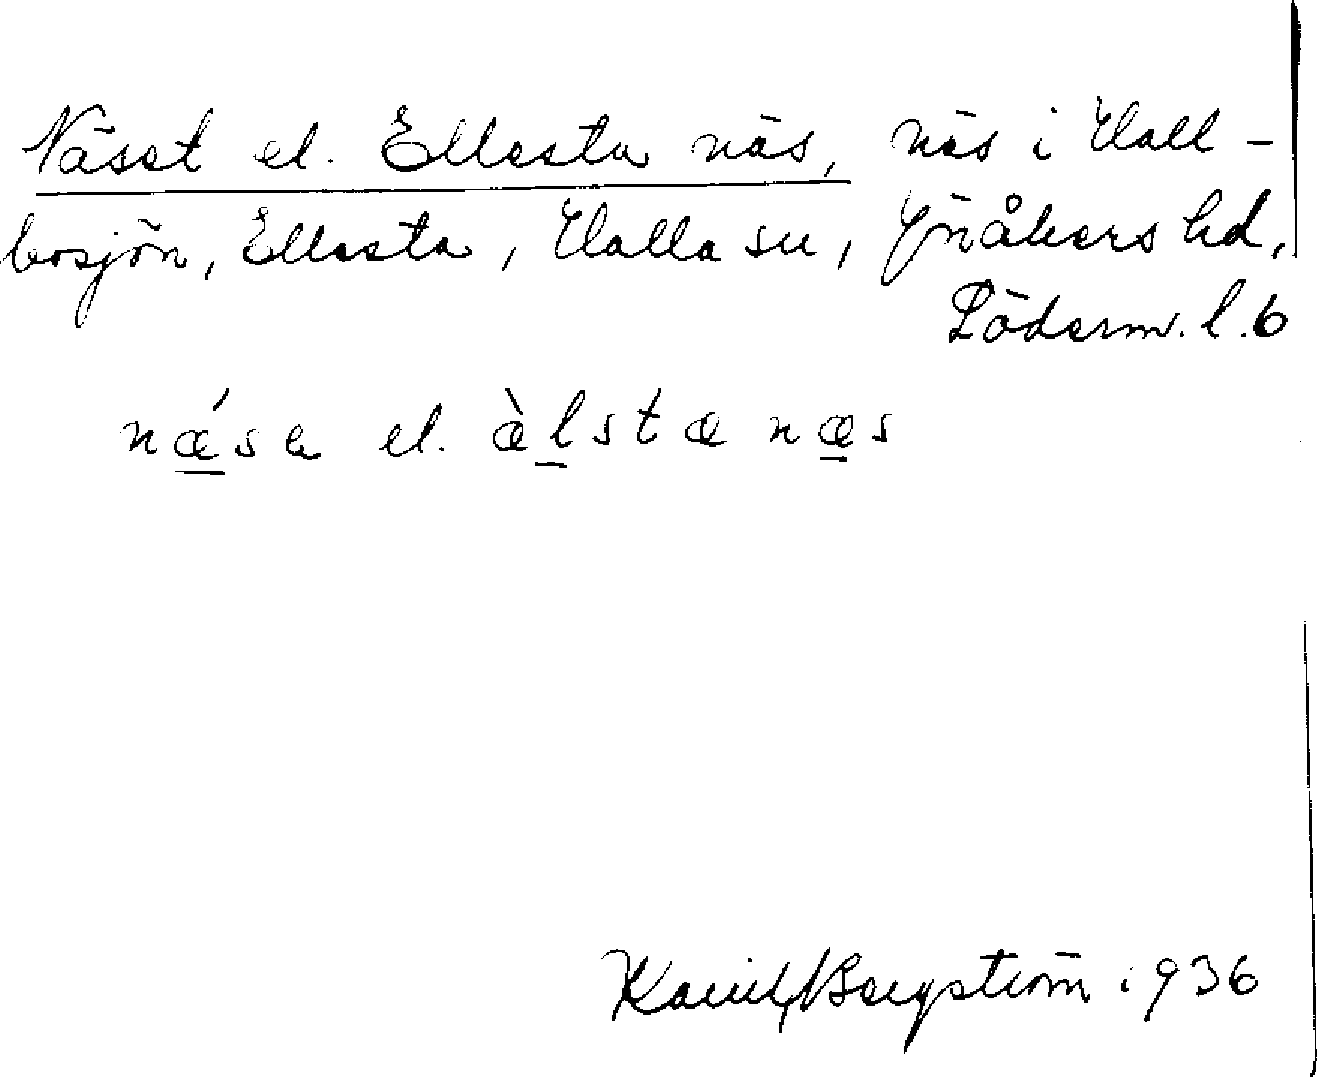 Näset el. Ellesta näs, näs i Hall-
bosjön, Ellesta, Halla sn, Rönåkers hd,
Söderm. l. 6
nǽ̱sa el. æ̀ḻstanæ̱s
Bergström 1936